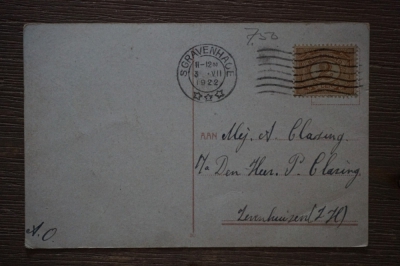 7,50
S GRAVENHAGE
11-12 M
3 .VII
1922
AAN
Mej. A. Clasing
p/a Den Heer P. Clasing
Zevenhuizen (Z.H)
A.O